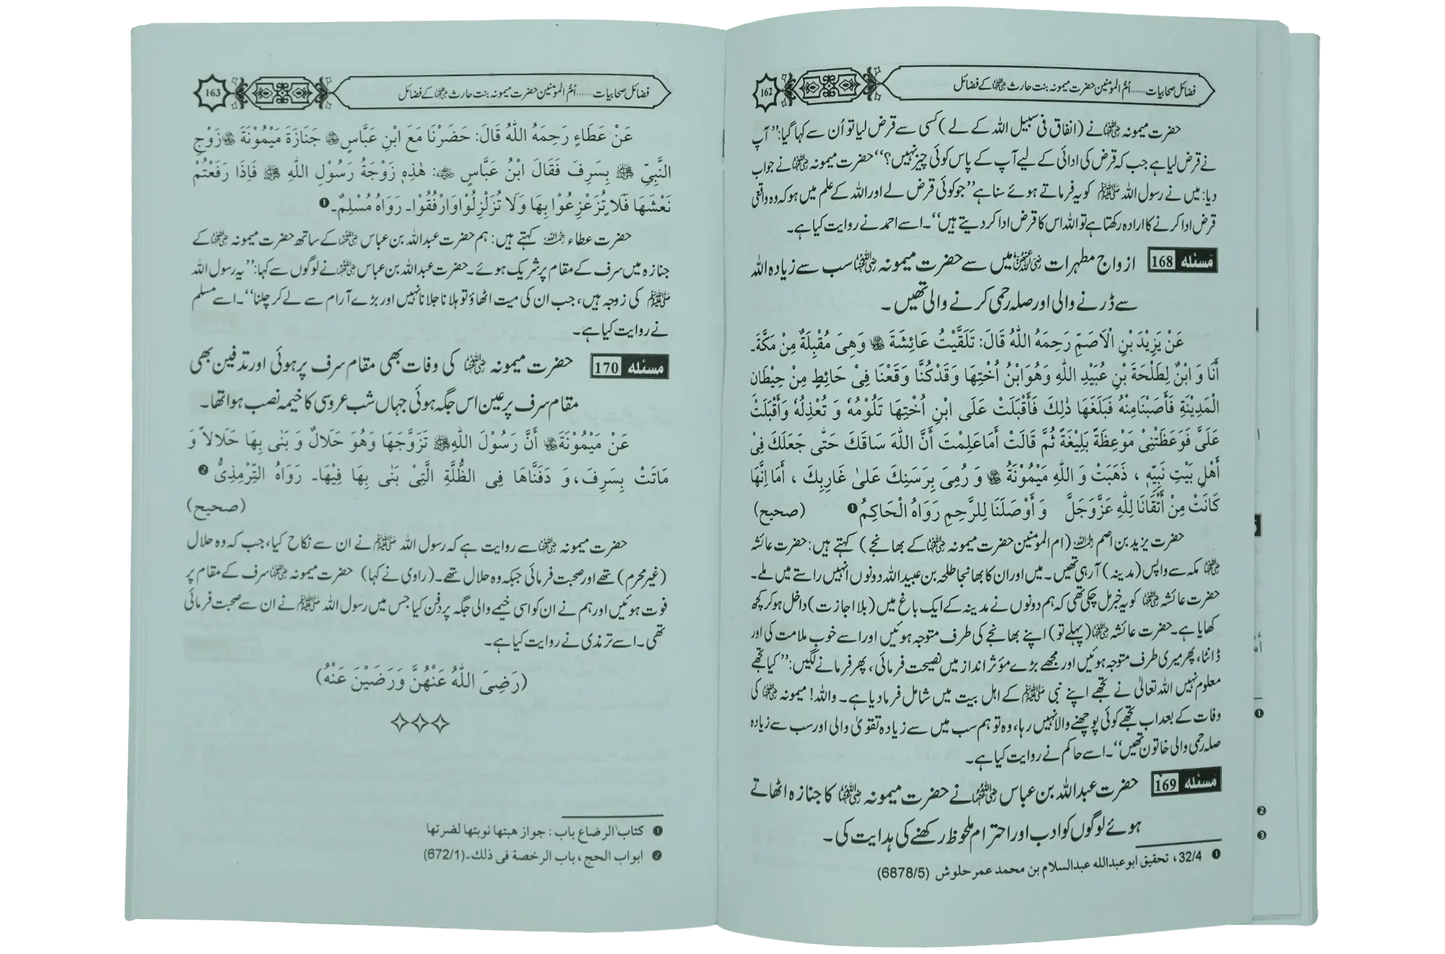 فضائل صحابیات......اُمّ المؤمنین حضرت میمونہ بنت حارث رضی اللہ عنہا کے فضائل
162
حضرت میمونہ رضی اللہ عنہا نے (انفاق فی سبیل اللہ کے لے) کسی سے قرض لیا تو اُن سے کہا گیا: ’’آپ
نے قرض لیا ہے جب کہ قرض کی ادائی کے لیے آپ کے پاس کوئی چیز نہیں؟‘‘ حضرت میمونہ رضی اللہ عنہا نے جواب
دیا: میں نے رسول اللہ ﷺ کو یہ فرماتے ہوئے سنا ہے ’’جو کوئی قرض لے اور اللہ کے علم میں ہو کہ وہ واقعی
قرض ادا کرنے کا ارادہ رکھتا ہے تو اللہ اس کا قرض ادا کر دیتے ہیں‘‘۔ اسے احمد نے روایت کیا ہے۔
مسئلہ 168 ازواج مطہرات رضی اللہ عنہن میں سے حضرت میمونہ رضی اللہ عنہا سب سے زیادہ اللہ
سے ڈرنے والی اور صلہ رحمی کرنے والی تھیں ۔
عَنْ يَزِيْدَ بْنِ الْاَصَمِّ رَحِمَهُ اللّٰهُ قَالَ: تَلَقَّيْتُ عَائِشَةَ رضی اللہ عنہا وَهِىَ مُقْبِلَةٌ مِنْ مَكَّةَ۔
أَنَا وَ ابْنٌ لِطَلْحَةَ بْنِ عُبَيْدِ اللّٰهِ وَهُوَ ابْنُ اُخْتِهَا وَقَدْ كُنَّا وَقَعْنَا فِىْ حَائِطٍ مِنْ حِيْطَانِ
الْمَدِيْنَةِ فَأَصَبْنَا مِنْهُ فَبَلَغَهَا ذٰلِكَ فَأَقْبَلَتْ عَلَى ابْنِ اُخْتِهَا تَلُوْمُهُ وَ تُعْذِلُهُ وَأَقْبَلَتْ
عَلَىَّ فَوَعَظَتْنِىْ مَوْعِظَةً بَلِيْغَةً ثُمَّ قَالَتْ أَمَا عَلِمْتَ أَنَّ اللّٰهَ سَاقَكَ حَتّٰى جَعَلَكَ فِىْ
أَهْلِ بَيْتِ نَبِيِّهِ ، ذَهَبَتْ وَ اللّٰهِ مَيْمُوْنَةُ رضی اللہ عنہا وَ رُمِىَ بِرَسَنِكَ عَلىٰ غَارِبِكَ ، أَمَا إِنَّهَا
كَانَتْ مِنْ أَتْقَانَا لِلّٰهِ عَزَّوَجَلَّ وَ أَوْصَلَنَا لِلرَّحِمِ رَوَاهُ الْحَاكِمُ ❶ (صحیح)
حضرت یزید بن اصم رحمہ اللہ (ام المؤمنین حضرت میمونہ رضی اللہ عنہا کے بھانجے) کہتے ہیں: حضرت عائشہ
رضی اللہ عنہا مکہ سے واپس (مدینہ) آرہی تھیں۔ میں اور ان کا بھانجا طلحہ بن عبید اللہ دونوں انہیں راستے میں ملے۔
حضرت عائشہ رضی اللہ عنہا کو یہ خبر مل چکی تھی کہ ہم دونوں نے مدینہ کے ایک باغ میں (بلا اجازت) داخل ہو کر کچھ
کھایا ہے۔ حضرت عائشہ رضی اللہ عنہا (پہلے تو) اپنے بھانجے کی طرف متوجہ ہوئیں اور اسے خوب ملامت کی اور
ڈانٹا، پھر میری طرف متوجہ ہوئیں اور مجھے بڑے مؤثر انداز میں نصیحت فرمائی، پھر فرمانے لگیں: ’’کیا تجھے
معلوم نہیں اللہ تعالیٰ نے تجھے اپنے نبی ﷺ کے اہل بیت میں شامل فرما دیا ہے۔ واللہ! میمونہ رضی اللہ عنہا کی
وفات کے بعد اب تجھے کوئی پوچھنے والا نہیں رہا، وہ تو ہم سب میں سے زیادہ تقویٰ والی اور سب سے زیادہ
صلہ رحمی والی خاتون تھیں‘‘۔ اسے حاکم نے روایت کیا ہے۔
مسئلہ 169 حضرت عبداللہ بن عباس رضی اللہ عنہما نے حضرت میمونہ رضی اللہ عنہا کا جنازہ اٹھاتے
ہوئے لوگوں کو ادب اور احترام ملحوظ رکھنے کی ہدایت کی ۔
❶ 32/4، تحقیق ابو عبداللہ عبدالسلام بن محمد عمر حلوش (6878/5)
فضائل صحابیات......اُمّ المؤمنین حضرت میمونہ بنت حارث رضی اللہ عنہا کے فضائل
163
عَنْ عَطَاءٍ رَحِمَهُ اللّٰهُ قَالَ: حَضَرْنَا مَعَ ابْنِ عَبَّاسٍ رضی اللہ عنہما جَنَازَةَ مَيْمُوْنَةَ رضی اللہ عنہا زَوْجِ
النَّبِىِّ ﷺ بِسَرِفَ فَقَالَ ابْنُ عَبَّاسٍ رضی اللہ عنہما : هٰذِهِ زَوْجَةُ رَسُوْلِ اللّٰهِ ﷺ فَإِذَا رَفَعْتُمْ
نَعْشَهَا فَلَا تُزَعْزِعُوْا بِهَا وَلَا تُزَلْزِلُوْا وَارْفُقُوْا۔ رَوَاهُ مُسْلِمٌ۔❶
حضرت عطاء رحمہ اللہ کہتے ہیں: ہم حضرت عبداللہ بن عباس رضی اللہ عنہما کے ساتھ حضرت میمونہ رضی اللہ عنہا کے
جنازہ میں سرف کے مقام پر شریک ہوئے۔ حضرت عبداللہ بن عباس رضی اللہ عنہما نے لوگوں سے کہا: ’’یہ رسول اللہ
ﷺ کی زوجہ ہیں، جب ان کی میت اٹھاؤ تو ہلانا جلانا نہیں اور بڑے آرام سے لے کر چلنا‘‘۔ اسے مسلم
نے روایت کیا ہے۔
مسئلہ 170 حضرت میمونہ رضی اللہ عنہا کی وفات بھی مقام سرف پر ہوئی اور تدفین بھی
مقام سرف پر عین اس جگہ ہوئی جہاں شب عروسی کا خیمہ نصب ہوا تھا۔
عَنْ مَيْمُوْنَةَ رضی اللہ عنہا أَنَّ رَسُوْلَ اللّٰهِ ﷺ تَزَوَّجَهَا وَهُوَ حَلَالٌ وَ بَنٰى بِهَا حَلَالاً وَ
مَاتَتْ بِسَرِفَ، وَ دَفَنَّاهَا فِى الظُّلَّةِ الَّتِىْ بَنٰى بِهَا فِيْهَا۔ رَوَاهُ التِّرْمِذِىُّ ❷
(صحیح)
حضرت میمونہ رضی اللہ عنہا سے روایت ہے کہ رسول اللہ ﷺ نے ان سے نکاح کیا، جب کہ وہ حلال
(غیر محرم) تھے اور صحبت فرمائی جبکہ وہ حلال تھے۔ (راوی نے کہا) حضرت میمونہ رضی اللہ عنہا سرف کے مقام پر
فوت ہوئیں اور ہم نے ان کو اسی خیمے والی جگہ پر دفن کیا جس میں رسول اللہ ﷺ نے ان سے صحبت فرمائی
تھی۔ اسے ترمذی نے روایت کیا ہے۔
(رَضِىَ اللّٰهُ عَنْهُنَّ وَرَضَيْنَ عَنْهُ)
❶ كتاب الرضاع باب : جواز هبتها نوبتها لضرتها
❷ ابواب الحج ، باب الرخصة فى ذلك۔(672/1)